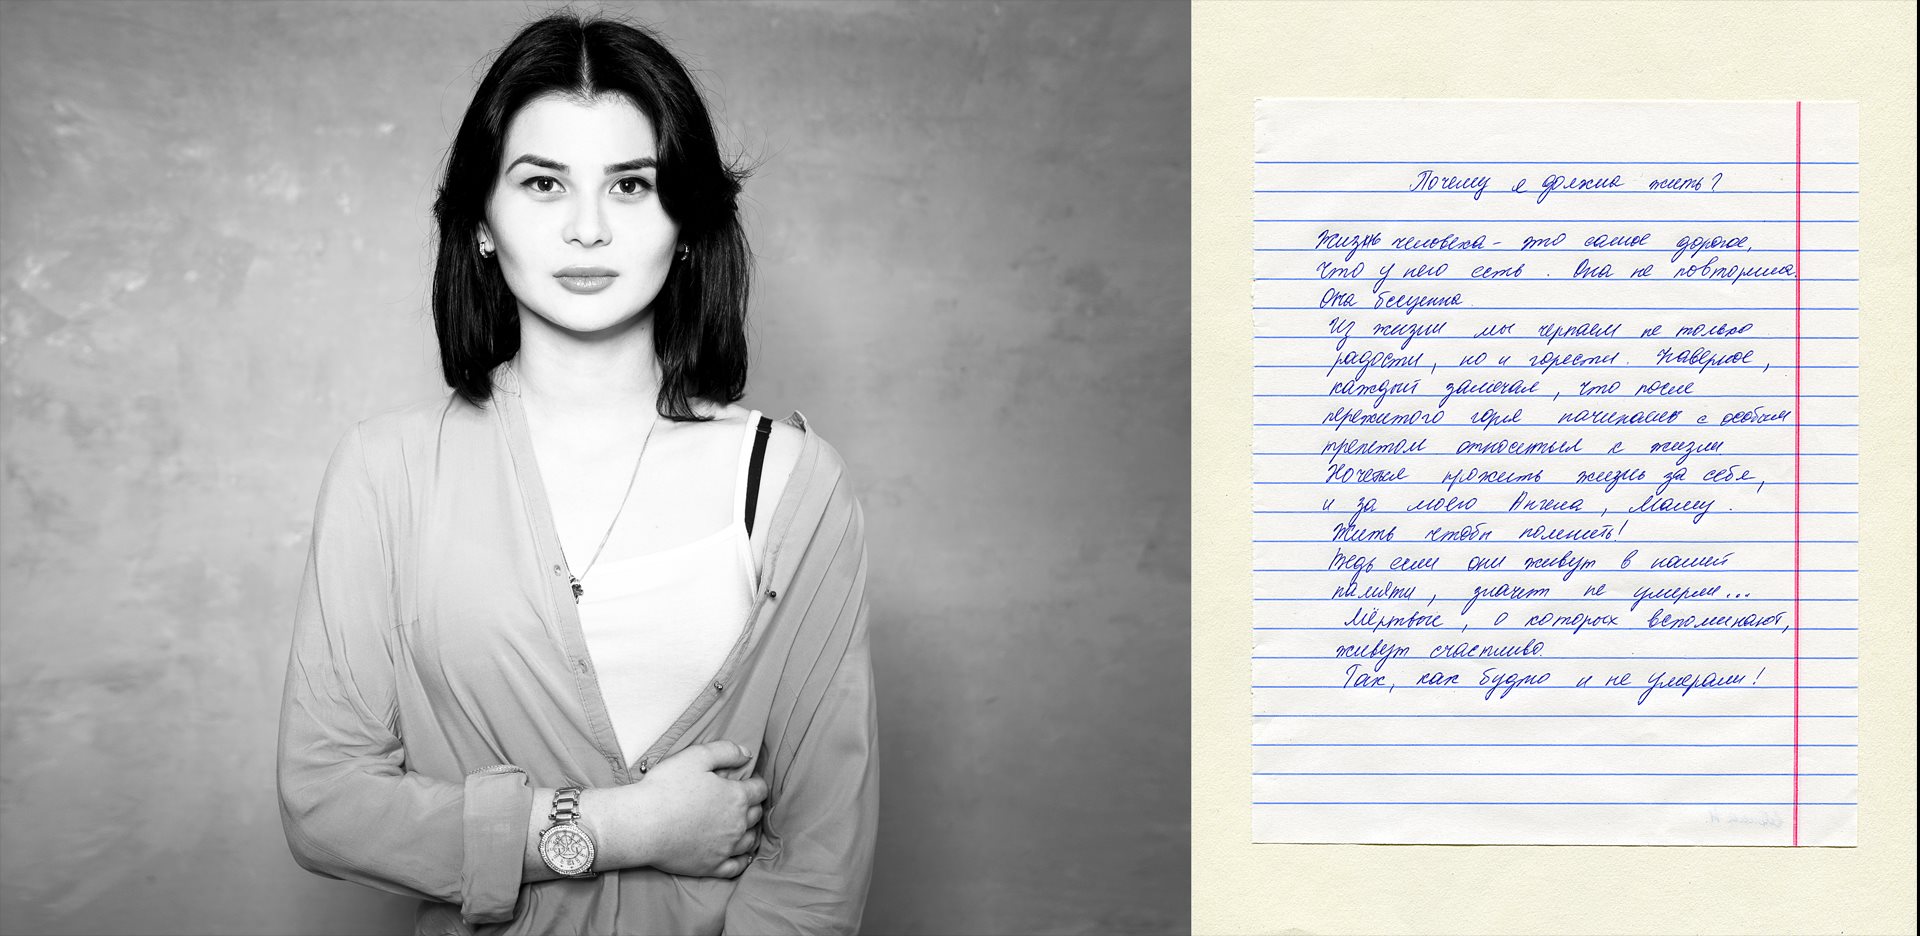 Почему я должна жить?
Жизнь человека - это самое дорогое,
что у него есть. Она не повторима.
Она бесценна.
Из жизни мы черпаем не только
радости, но и горести. Наверное,
каждый замечал, что после
пережитого горя начинаешь с особым
трепетом относиться к жизни
Хочется прожить жизнь за себя,
и за моего Ангела, Маму.
Жить чтобы помнить!
Ведь если они живут в нашей
памяти, значит не умерли...
Мёртвые, о которых вспоминают,
живут счастливо.
Так, как будто и не умерали!